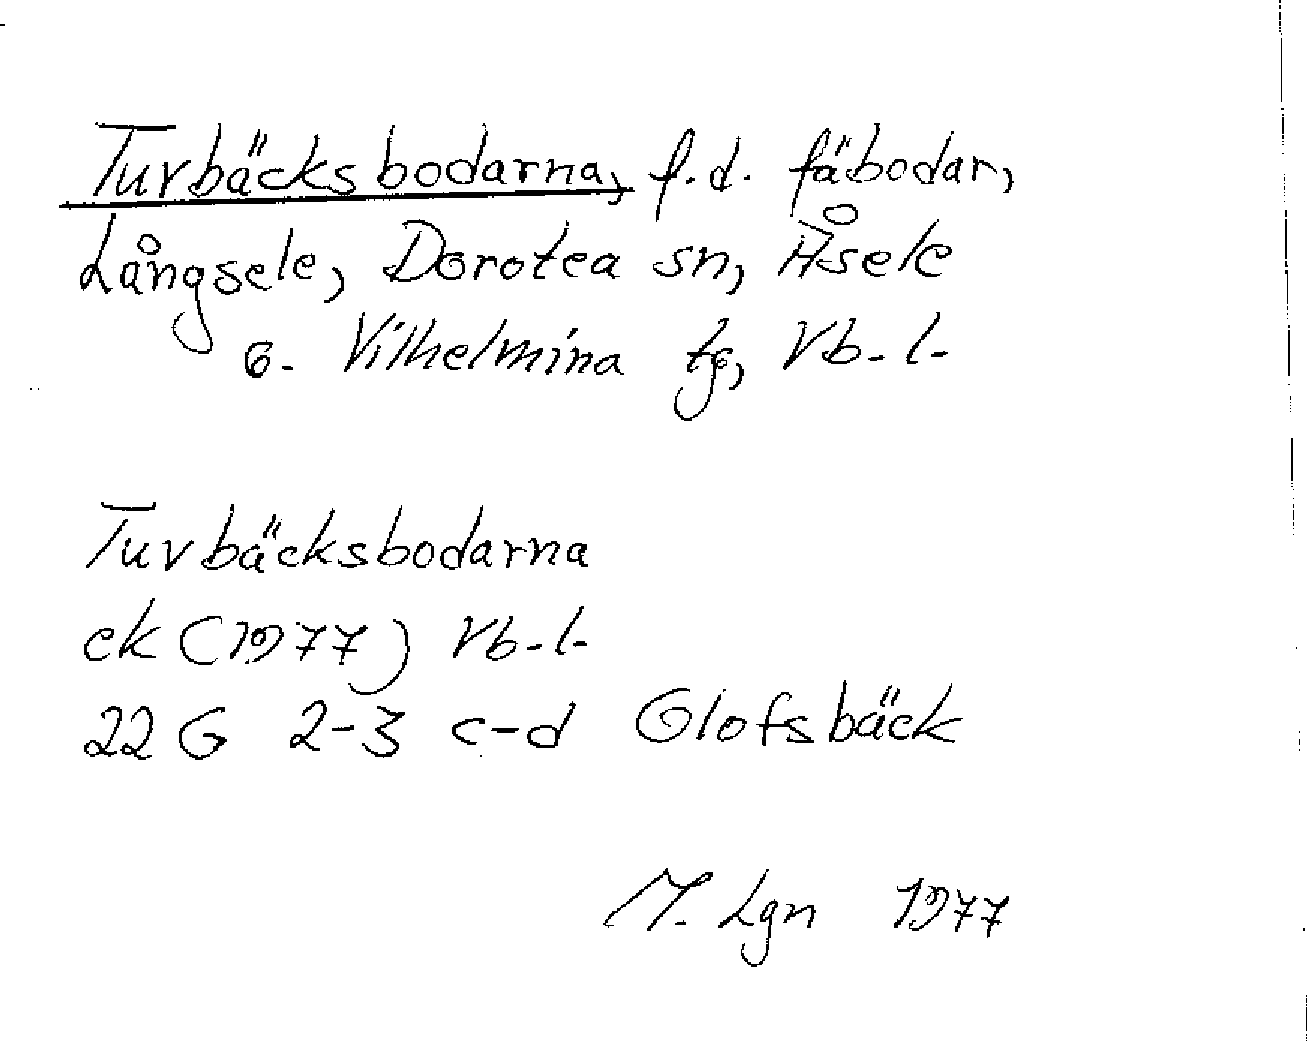 Turbäcksbodarna, f.d. fäbodar,
Långsele, Dorotea sn, Åsele
o. Vilhelmina tg, Vb. l.
Tuvbäcksbodarna
ek (1977) Vb. l.
22 G 2-3 c-d Olofsbäck
M. Lgn 1977